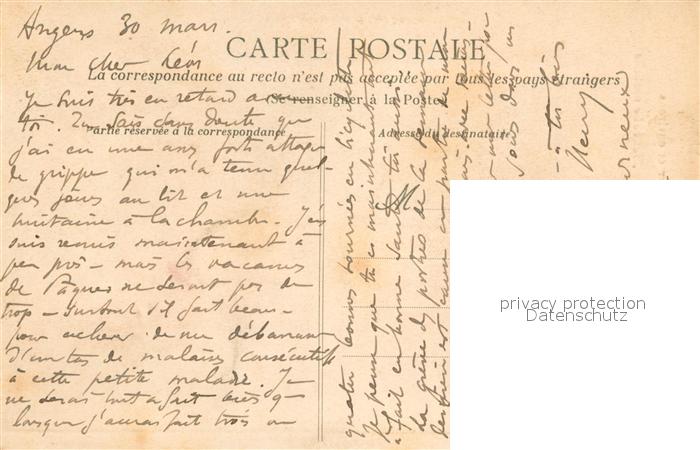 Angers 30 mars.
Mon cher Léon
CARTE POSTALE
La correspondance au recto n'est pas acceptée par tous les pays étrangers
(Se renseigner à la Poste)
Partie réservée à la correspondance
Adresse du destinataire
Je suis très en retard avec
toi. Tu sais sans doute que
j'ai eu une assez forte attaque
de grippe qui m'a tenu quel-
ques jours au lit et une
huitaine à la chambre. J'en
suis remis maintenant à
peu près - mais les vacances
de Pâques ne seront pas de
trop - surtout s'il fait beau -
pour achever de me débarrasser
d'un tas de malaises consécutifs
à cette petite maladie. Je
ne serai tout à fait bien que
lorsque j'aurai fait trois ou
quatre bonnes tournées en bicyclette
Je pense que tu es maintenant tout
à fait en bonne santé toi aussi.
La grève des postes de la semaine
dernière est cause en partie de mon
Henry
privacy protection
Datenschutz